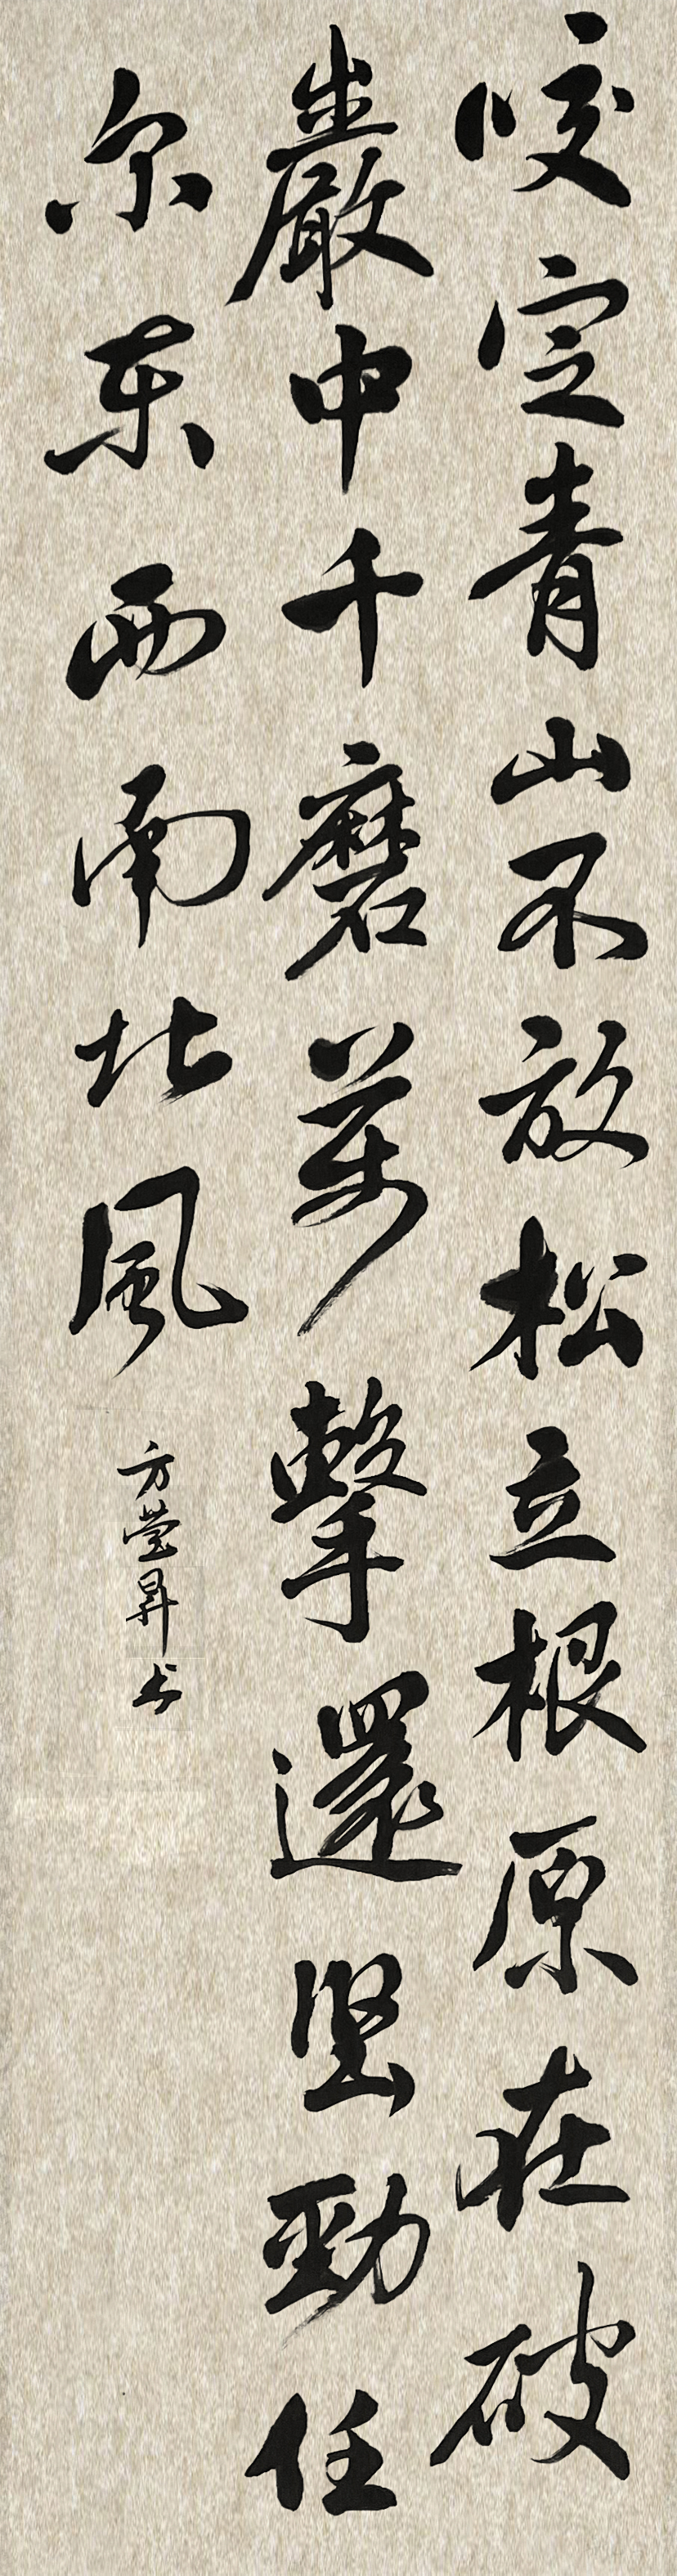 咬定青山不放松立根原在破
巖中千磨萬擊還坚勁任
尔东西南北風
方莹昇书